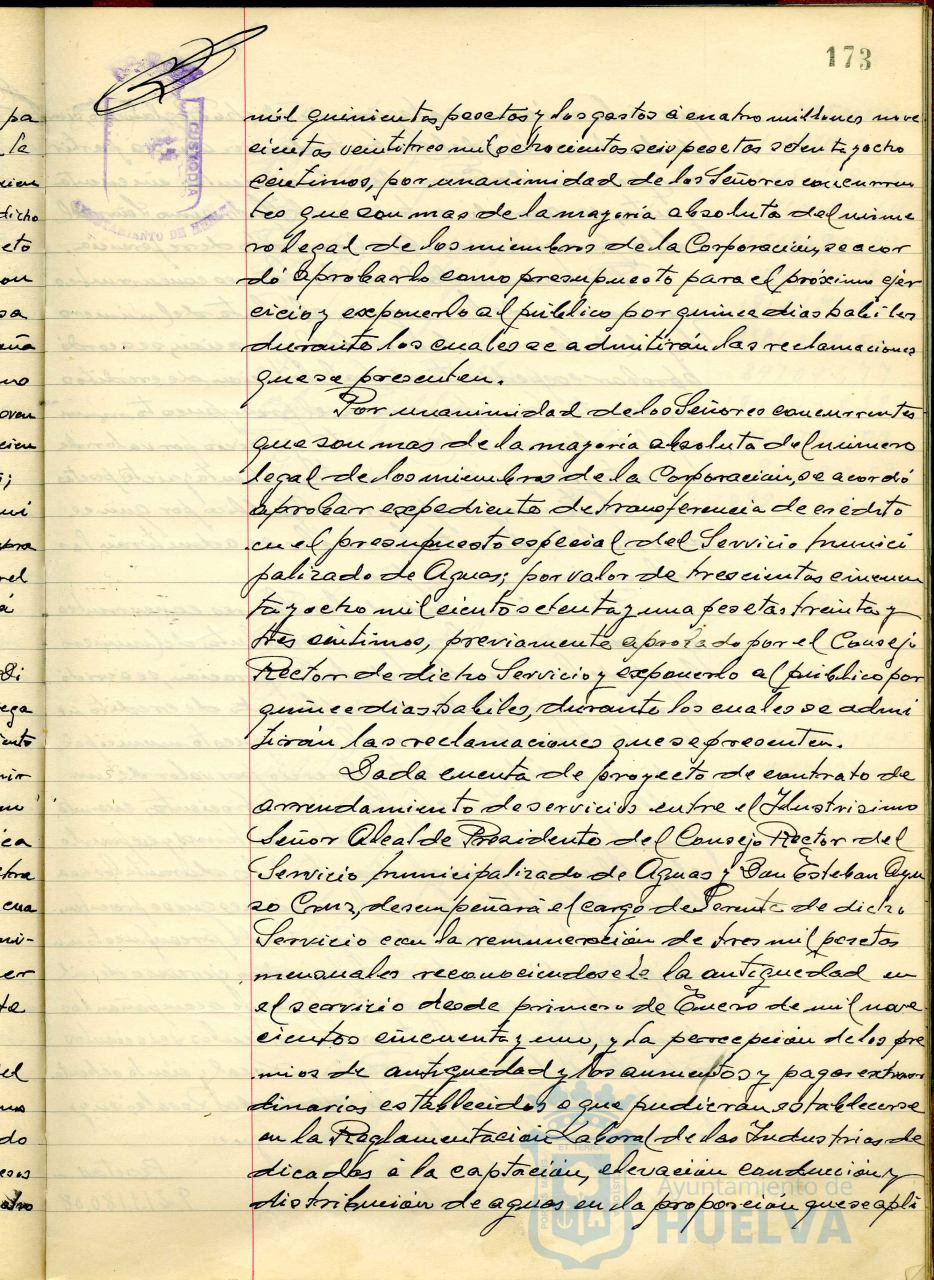 173
CUSTODIA
AYUNTAMIENTO DE HUELVA
mil quinientas pesetas y los gastos á cuatro millones nove
cientas veintitres mil ochocientas seis pesetas setenta y ocho
céntimos, por unanimidad de los Señores concurren
tes que son mas de la mayoría absoluta del núme
ro legal de los miembros de la Corporación, se acor
dó aprobarlo como presupuesto para el próximo ejer
cicio y exponerlo al público por quince dias habiles
durante los cuales se admitirán las reclamaciones
que se presenten.
Por unanimidad de los Señores concurrentes
que son mas de la mayoría absoluta del número
legal de los miembros de la Corporación, se acordó
aprobar expediente de transferencia de crédito
en el presupuesto especial del Servicio Munici
palizado de Aguas; por valor de trescientas cincuen
ta y ocho mil ciento setenta y una pesetas treinta y
tres céntimos, previamente aprobado por el Consejo
Rector de dicho Servicio y exponerlo al público por
quince dias habiles, durante los cuales se admi
tirán las reclamaciones que se presenten.
Dada cuenta de proyecto de contrato de
arrendamiento de servicios entre el Ilustrisimo
Señor Alcalde Presidente del Consejo Rector del
Servicio Municipalizado de Aguas y Don Esteban Ayu
so Cruz, desempeñará el cargo de Gerente de dicho
Servicio con la remuneración de tres mil pesetas
mensuales reconociendosele la antiguedad en
el servicio desde primero de Enero de mil nove
cientos cincuenta y uno, y la percepción de los pre
mios de antiguedad y los aumentos y pagas extraor
dinarias establecidos o que pudieran establecerse
en la Reglamentación Laboral de las Industrias de
dicadas á la captación, elevación conducción y
distribución de aguas en la proporción que se apli
Ayuntamiento de
HUELVA